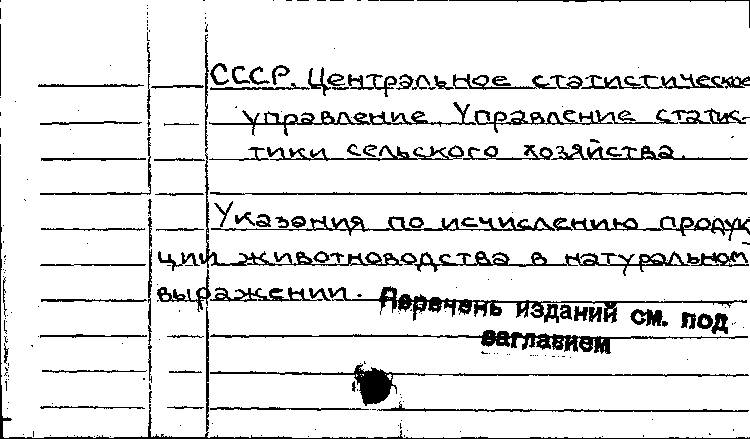 СССР. Центральное статистическое
управление. Управление статис-
тики сельского хозяйства.
Указания по исчислению продук
ции животноводства в натуральном
выражении.
Перечень изданий см. под
заглавием